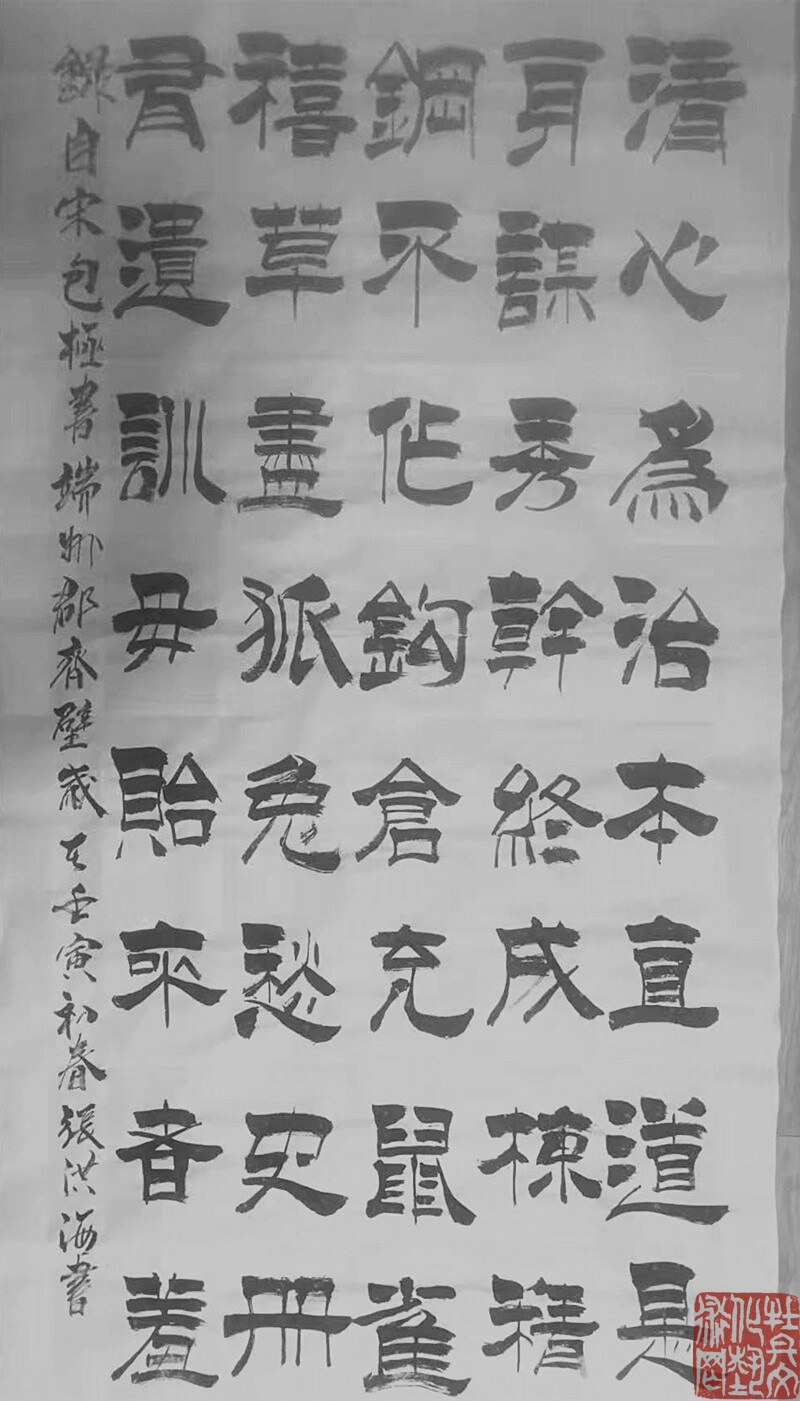 清心為治本直道是
身謀秀幹終成棟精
鋼不作鈎倉充鼠雀
禧草盡狐兔愁史冊
有遺訓毋貽來者羞
錄自宋包極書端州郡齊壁歲在壬寅初春張洪海書